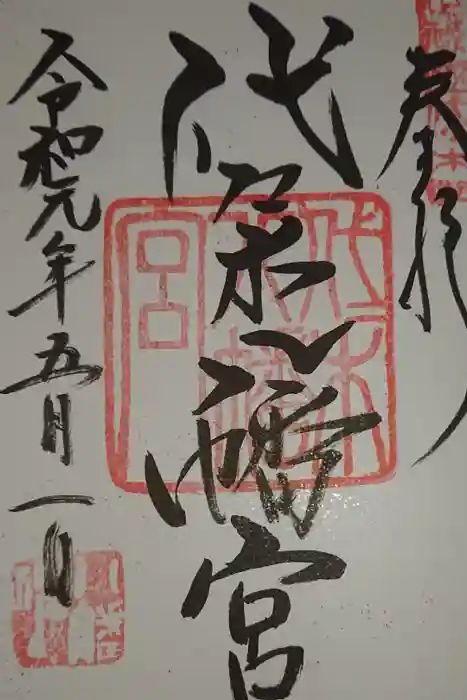 奉拝
代々木八幡宮
令和元年五月一日
代々木八幡宮